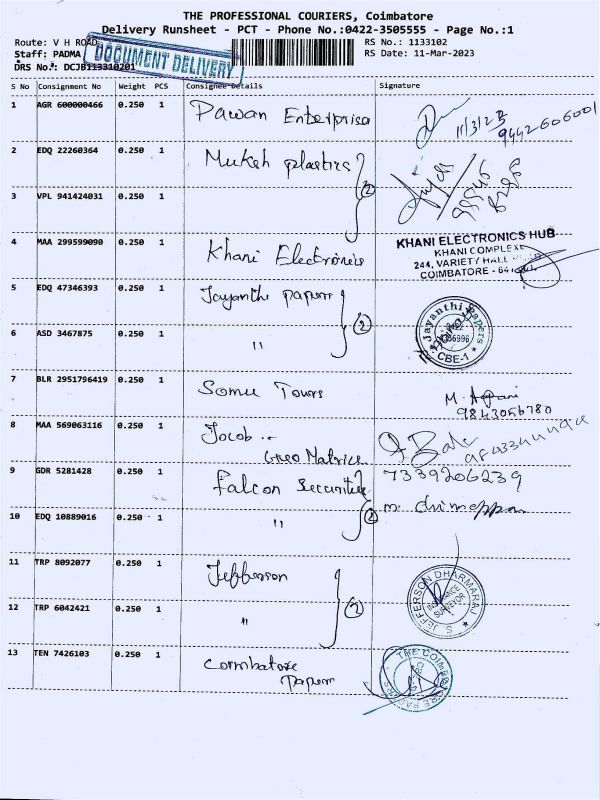 THE PROFESSIONAL COURIERS, Coimbatore
Delivery Runsheet - PCT - Phone No.:0422-3505555 - Page No.:1
Route: V H ROAD
RS No.: 1133102
Staff: PADMA
RS Date: 11-Mar-2023
DRS No.: DCJB113310201
DOCUMENT DELIVERY
S No Consignment No Weight PCS Consignee Details Signature
1 AGR 600000466 0.250 1 Pawan Enterprise 11/3/23
9442606001
2 EDQ 22260364 0.250 1 Mukesh plastics
2
3 VPL 941424031 0.250 1
4 MAA 299599090 0.250 1 Khani Electronics
KHANI ELECTRONICS HUB
KHANI COMPLEX
244, VARIETY HALL
COIMBATORE - 641
5 EDQ 47346393 0.250 1 Jayanthi papers
2
Jayanthi Papers
CBE-1
6 ASD 3467875 0.250 1 "
7 BLR 2951796419 0.250 1 Somu Tours
9843056780
8 MAA 569063116 0.250 1 Jocob
Geo Matrice
9 GDR 5281428 0.250 1 Falcon Securities 7339206239
2
10 EDQ 10889016 0.250 1 "
11 TRP 8092077 0.250 1 Jefferson
2
S. JEFFERSON DHARMARAJ
INSURANCE
SURVEYOR
12 TRP 6042421 0.250 1 "
13 TEN 7426103 0.250 1 Coimbatore
papers
THE COIMBATORE PAPERS